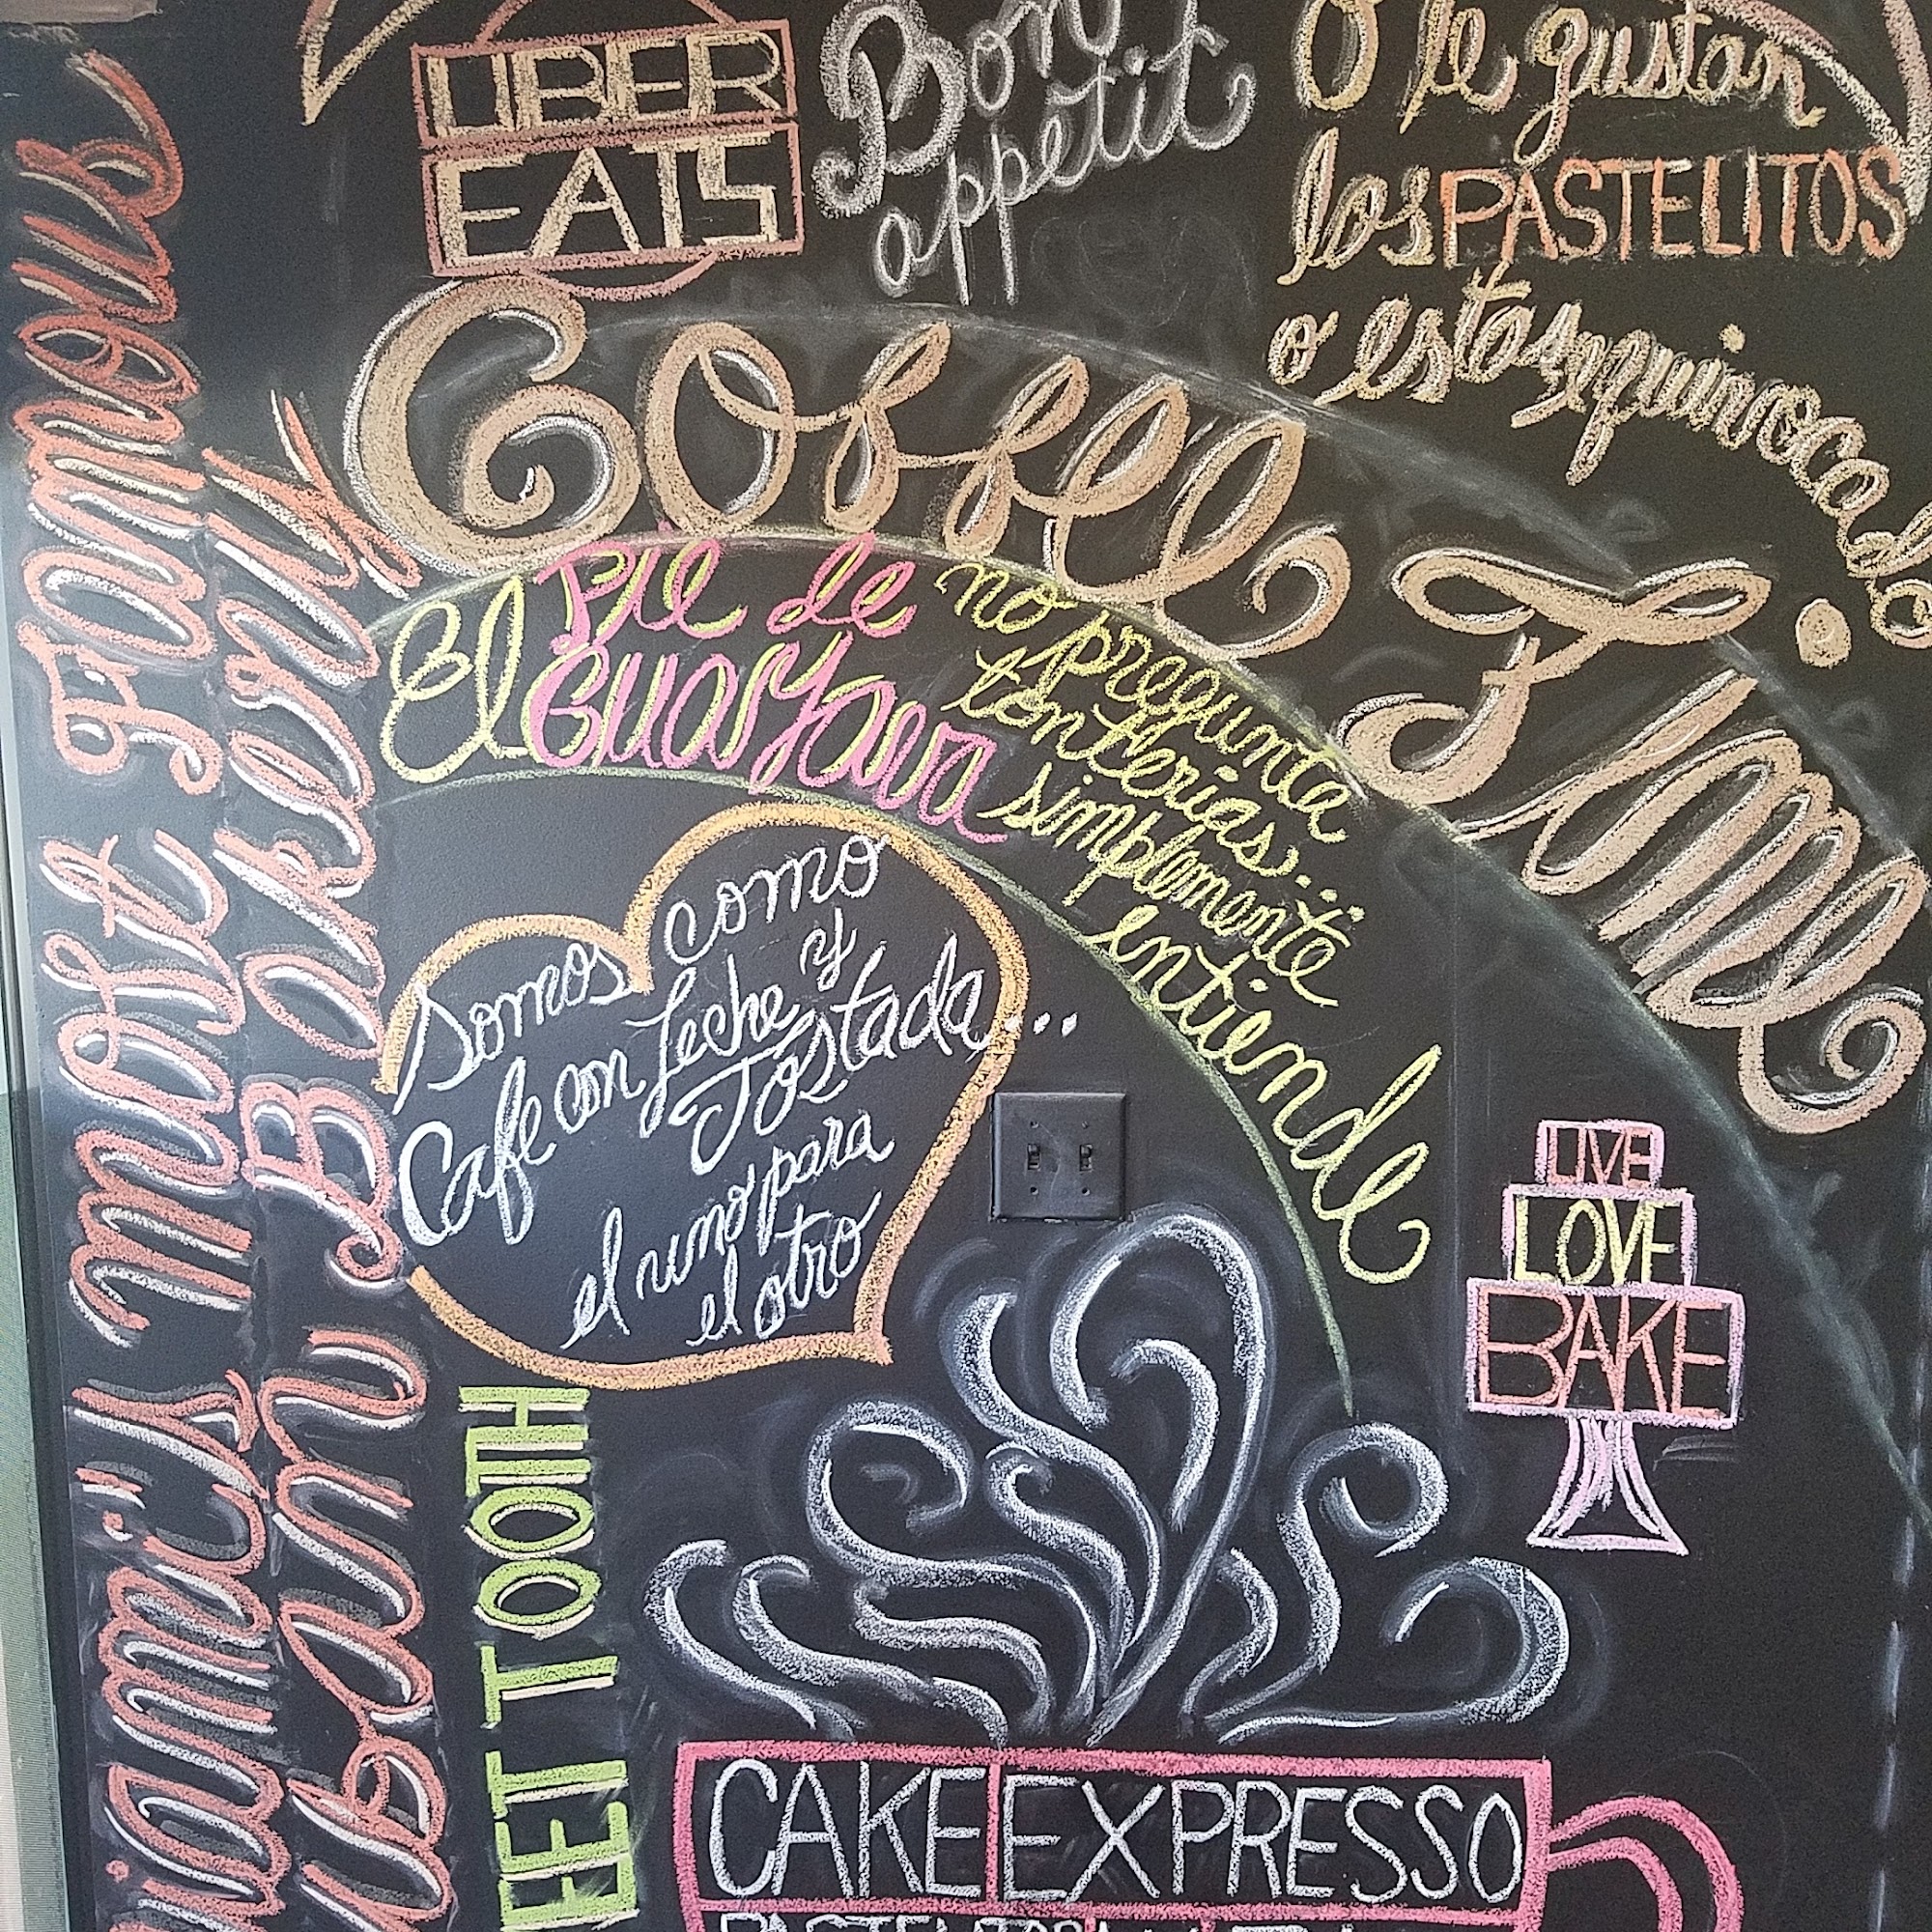 UBER
EATS
Bon
appetit
O le gustan
los PASTELITOS
o estas equivocado
Coffee Time
El Pie de
Guayava
no pregunta
tonterias...
simplemente
entiende
somos como
Cafe con Leche y
Tostada...
el uno para
el otro
LIVE
LOVE
BAKE
iami's most Famous
Cuban Bakery
EET TOOTH
CAKE EXPRESSO